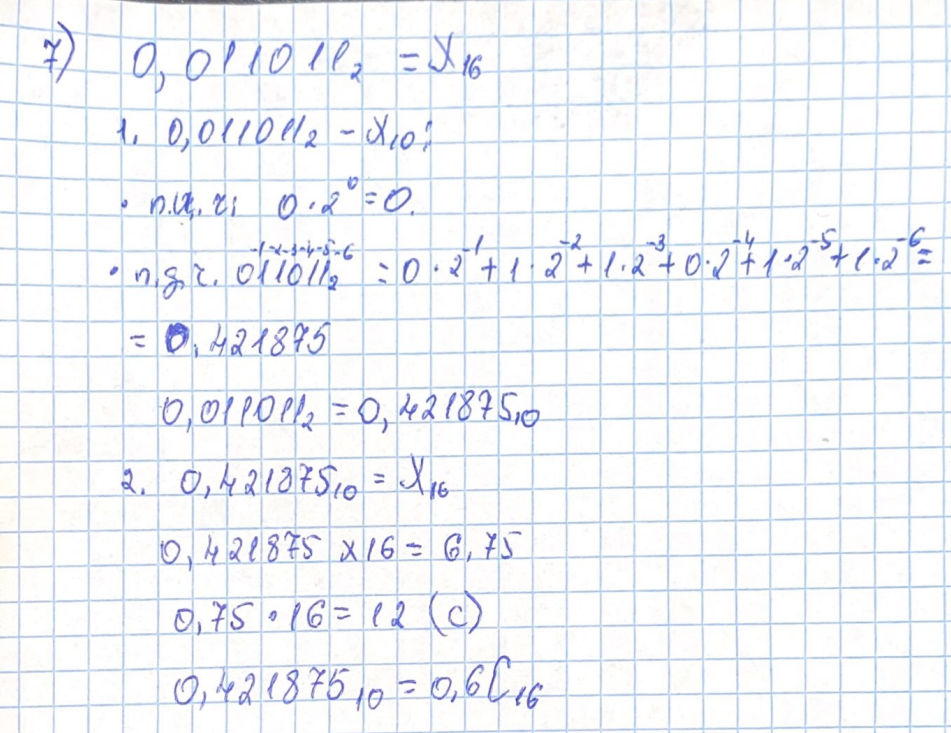 7) 0,011011₂ = X₁₆
1. 0,011011₂ – X₁₀:
• п.ц.ч: 0·2⁰=0.
-1-2-3-4-5-6
• п.д.ч. 011011₂ = 0·2⁻¹+1·2⁻²+1·2⁻³+0·2⁻⁴+1·2⁻⁵+1·2⁻⁶=
= 0,421875
0,011011₂ = 0,421875₁₀
2. 0,421875₁₀ = X₁₆
0,421875 x16 = 6,75
0,75 • 16 = 12 (C)
0,421875₁₀ = 0,6C₁₆